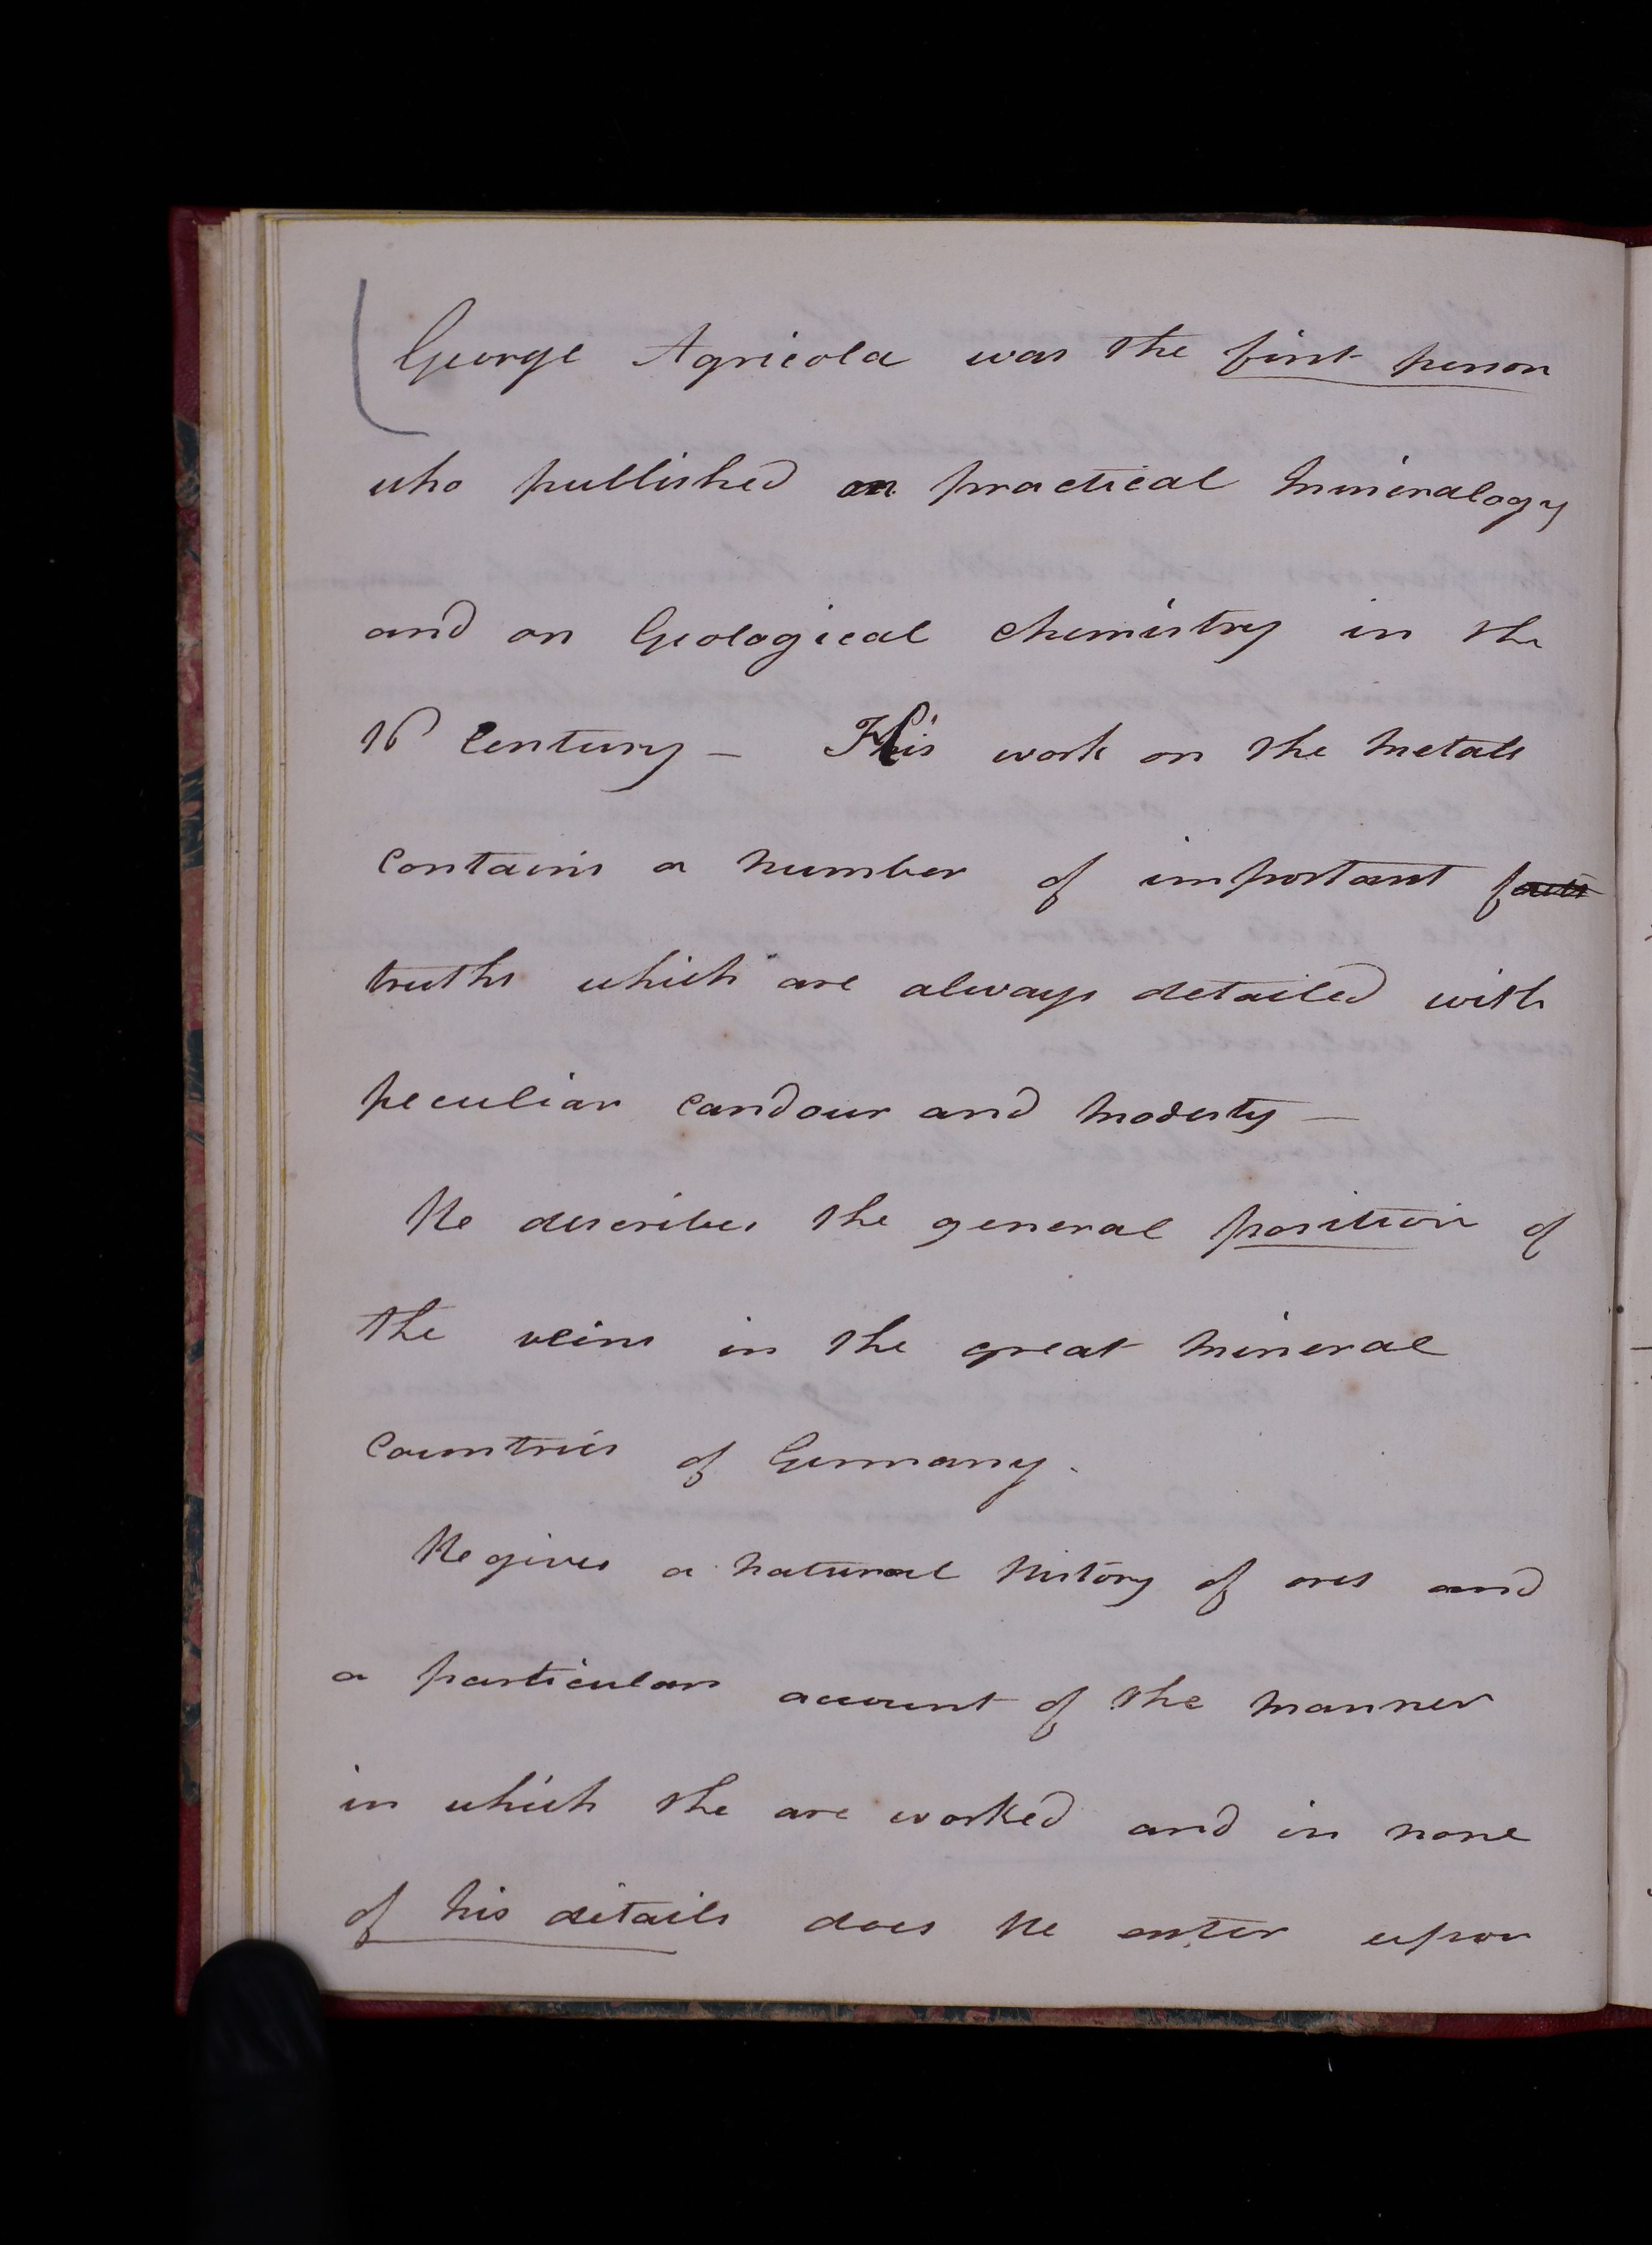 George Agricola was the first person
who published on practical Mineralogy
and on Geological Chemistry in the
16 Century - His work on the Metals
contains a number of important facts
truths which are always detailed with
peculiar candour and modesty -
He describes the general position of
the veins in the great mineral
Countries of Germany.
He gives a natural history of ores and
a particular account of the manner
in which the are worked and in none
of his details does he enter upon